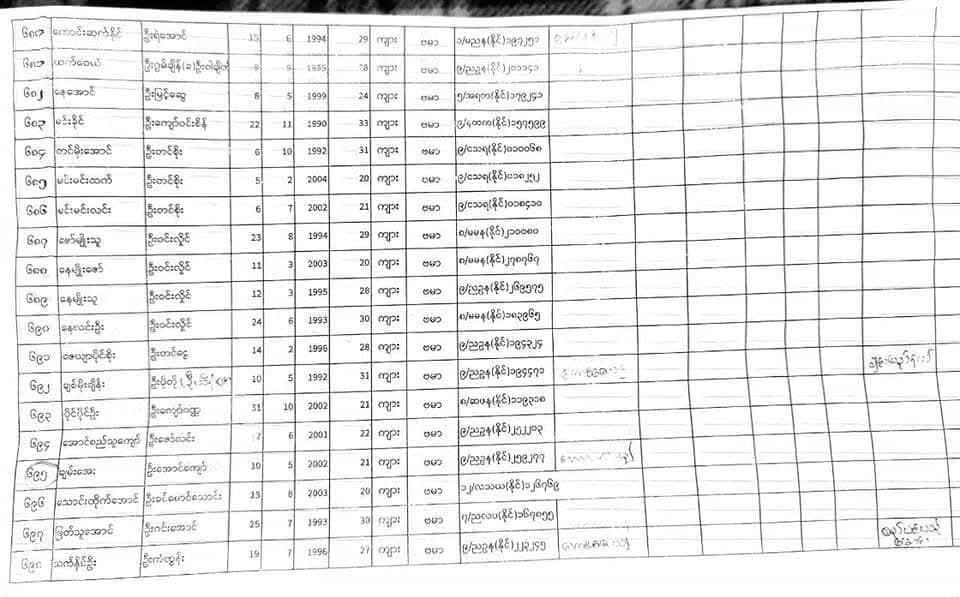 ၆၈၀ ကောင်းဆက်နိုင် ဦးရဲအောင် 15 6 1994 29 ကျား ဗမာ ၁/မညန(နိုင်)၁၉၇၂၅၁
၆၈၁ ထက်ဝေယံ 1995 28 ကျား ဗမာ ၉/ညဥန(နိုင်)၂၀၁၁၄၁
၆၈၂ နေအောင် ဦးမြင့်ဆွေ 8 5 1999 24 ကျား ဗမာ ၅/အရတ(နိုင်)၁၇၉၂၄၁
၆၈၃ မင်းခိုင် ဦးကျော်ဝင်းစိန် 22 11 1990 33 ကျား ဗမာ ၉/ (နိုင်)၁၅၇၅၉၉
၆၈၄ တင်မိုးအောင် ဦးတင်စိုး 6 10 1992 31 ကျား ဗမာ ၉/ငသရ(နိုင်)၀၁၀၀၆၈
၆၈၅ မင်းမင်းထက် ဦးတင်စိုး 5 2 2004 20 ကျား ဗမာ ၉/ငသရ(နိုင်)၀၁၈၂၅၂
၆၈၆ မင်းမင်းလင်း ဦးတင်စိုး 6 7 2002 21 ကျား ဗမာ ၉/ငသရ(နိုင်)၀၁၈၄၁၀
၆၈၇ ဇော်မျိုးသူ ဦးဝင်းလှိုင် 23 8 1994 29 ကျား ဗမာ ၈/မမန(နိုင်)၂၁၀၀၈၀
၆၈၈ နေမျိုးဇော် ဦးဝင်းလှိုင် 11 3 2003 20 ကျား ဗမာ ၈/မမန(နိုင်)၂၇၈၇၆၇
၆၈၉ နေမျိုးသူ ဦးဝင်းလှိုင် 12 3 1995 28 ကျား ဗမာ ၉/ညဥန(နိုင်)၂၆၉၅၇၅
၆၉၀ နေလင်းဦး ဦးဝင်းလှိုင် 24 6 1993 30 ကျား ဗမာ ၈/မမန(နိုင်)၁၈၃၉၆၅
၆၉၁ ဇေယျာပိုင်စိုး ဦးတင်ငွေ 14 2 1996 28 ကျား ဗမာ ၉/ညဥန(နိုင်)၁၉၄၃၂၄
၆၉၂ ချစ်မိုးချိန်း ဦးပိုတို 10 5 1992 31 ကျား ဗမာ ၉/ညဥန(နိုင်)၁၉၄၄၇၁
၆၉၃ ပိုင်ပိုင်ဦး ဦးကျော်ဝဏ္ဏ 31 10 2002 21 ကျား ဗမာ ၈/ဆပန(နိုင်)၁၁၉၃၁၈
၆၉၄ အောင်စည်သူကျော် ဦးဇော်လင်း 7 6 2001 22 ကျား ဗမာ ၉/ညဥန(နိုင်)၂၂၂၂၀၃
၆၉၅ ချမ်းအေး ဦးအောင်ကျော် 10 5 2002 21 ကျား ဗမာ ၉/ညဥန(နိုင်)၂၅၉၂၇၇
၆၉၆ သောင်းထိုက်အောင် ဦးခင်မောင်သောင်း 13 8 2003 20 ကျား ဗမာ ၁၂/လသယ(နိုင်)၁၂၆၇၆၉
၆၉၇ မြတ်သူအောင် ဦးဂင်းအောင် 25 7 1993 30 ကျား ဗမာ ၇/ညလပ(နိုင်)၁၆၇၈၅၅
၆၉၈ သက်နိုင်ဦး ဦးကံထွန်း 19 7 1996 27 ကျား ဗမာ ၉/ညဥန(နိုင်)၂၂၃၂၄၅